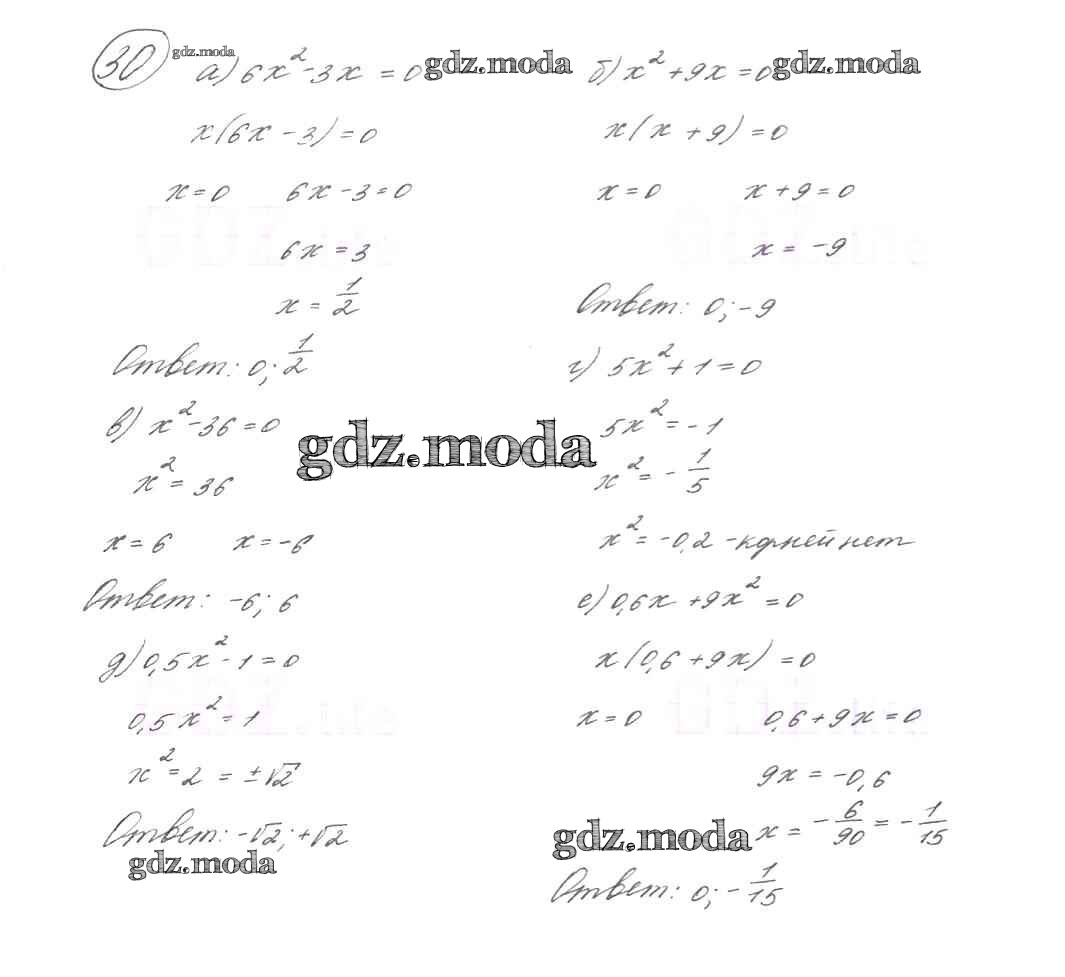 30 gdz.moda
а) 6x² - 3x = 0 gdz.moda
x(6x - 3) = 0
x = 0 6x - 3 = 0
6x = 3
x = 1/2
Ответ: 0; 1/2
б) x² + 9x = 0 gdz.moda
x(x + 9) = 0
x = 0 x + 9 = 0
x = -9
Ответ: 0; -9
в) x² - 36 = 0
x² = 36
x = 6 x = -6
Ответ: -6; 6
gdz.moda
г) 5x² + 1 = 0
5x² = -1
x² = -1/5
x² = -0,2 - корней нет
д) 0,5x² - 1 = 0
0,5x² = 1
x² = 2 = ±√2
Ответ: -√2; +√2
gdz.moda
е) 0,6x + 9x² = 0
x(0,6 + 9x) = 0
x = 0 0,6 + 9x = 0
9x = -0,6
gdz.moda x = -6/90 = -1/15
Ответ: 0; -1/15